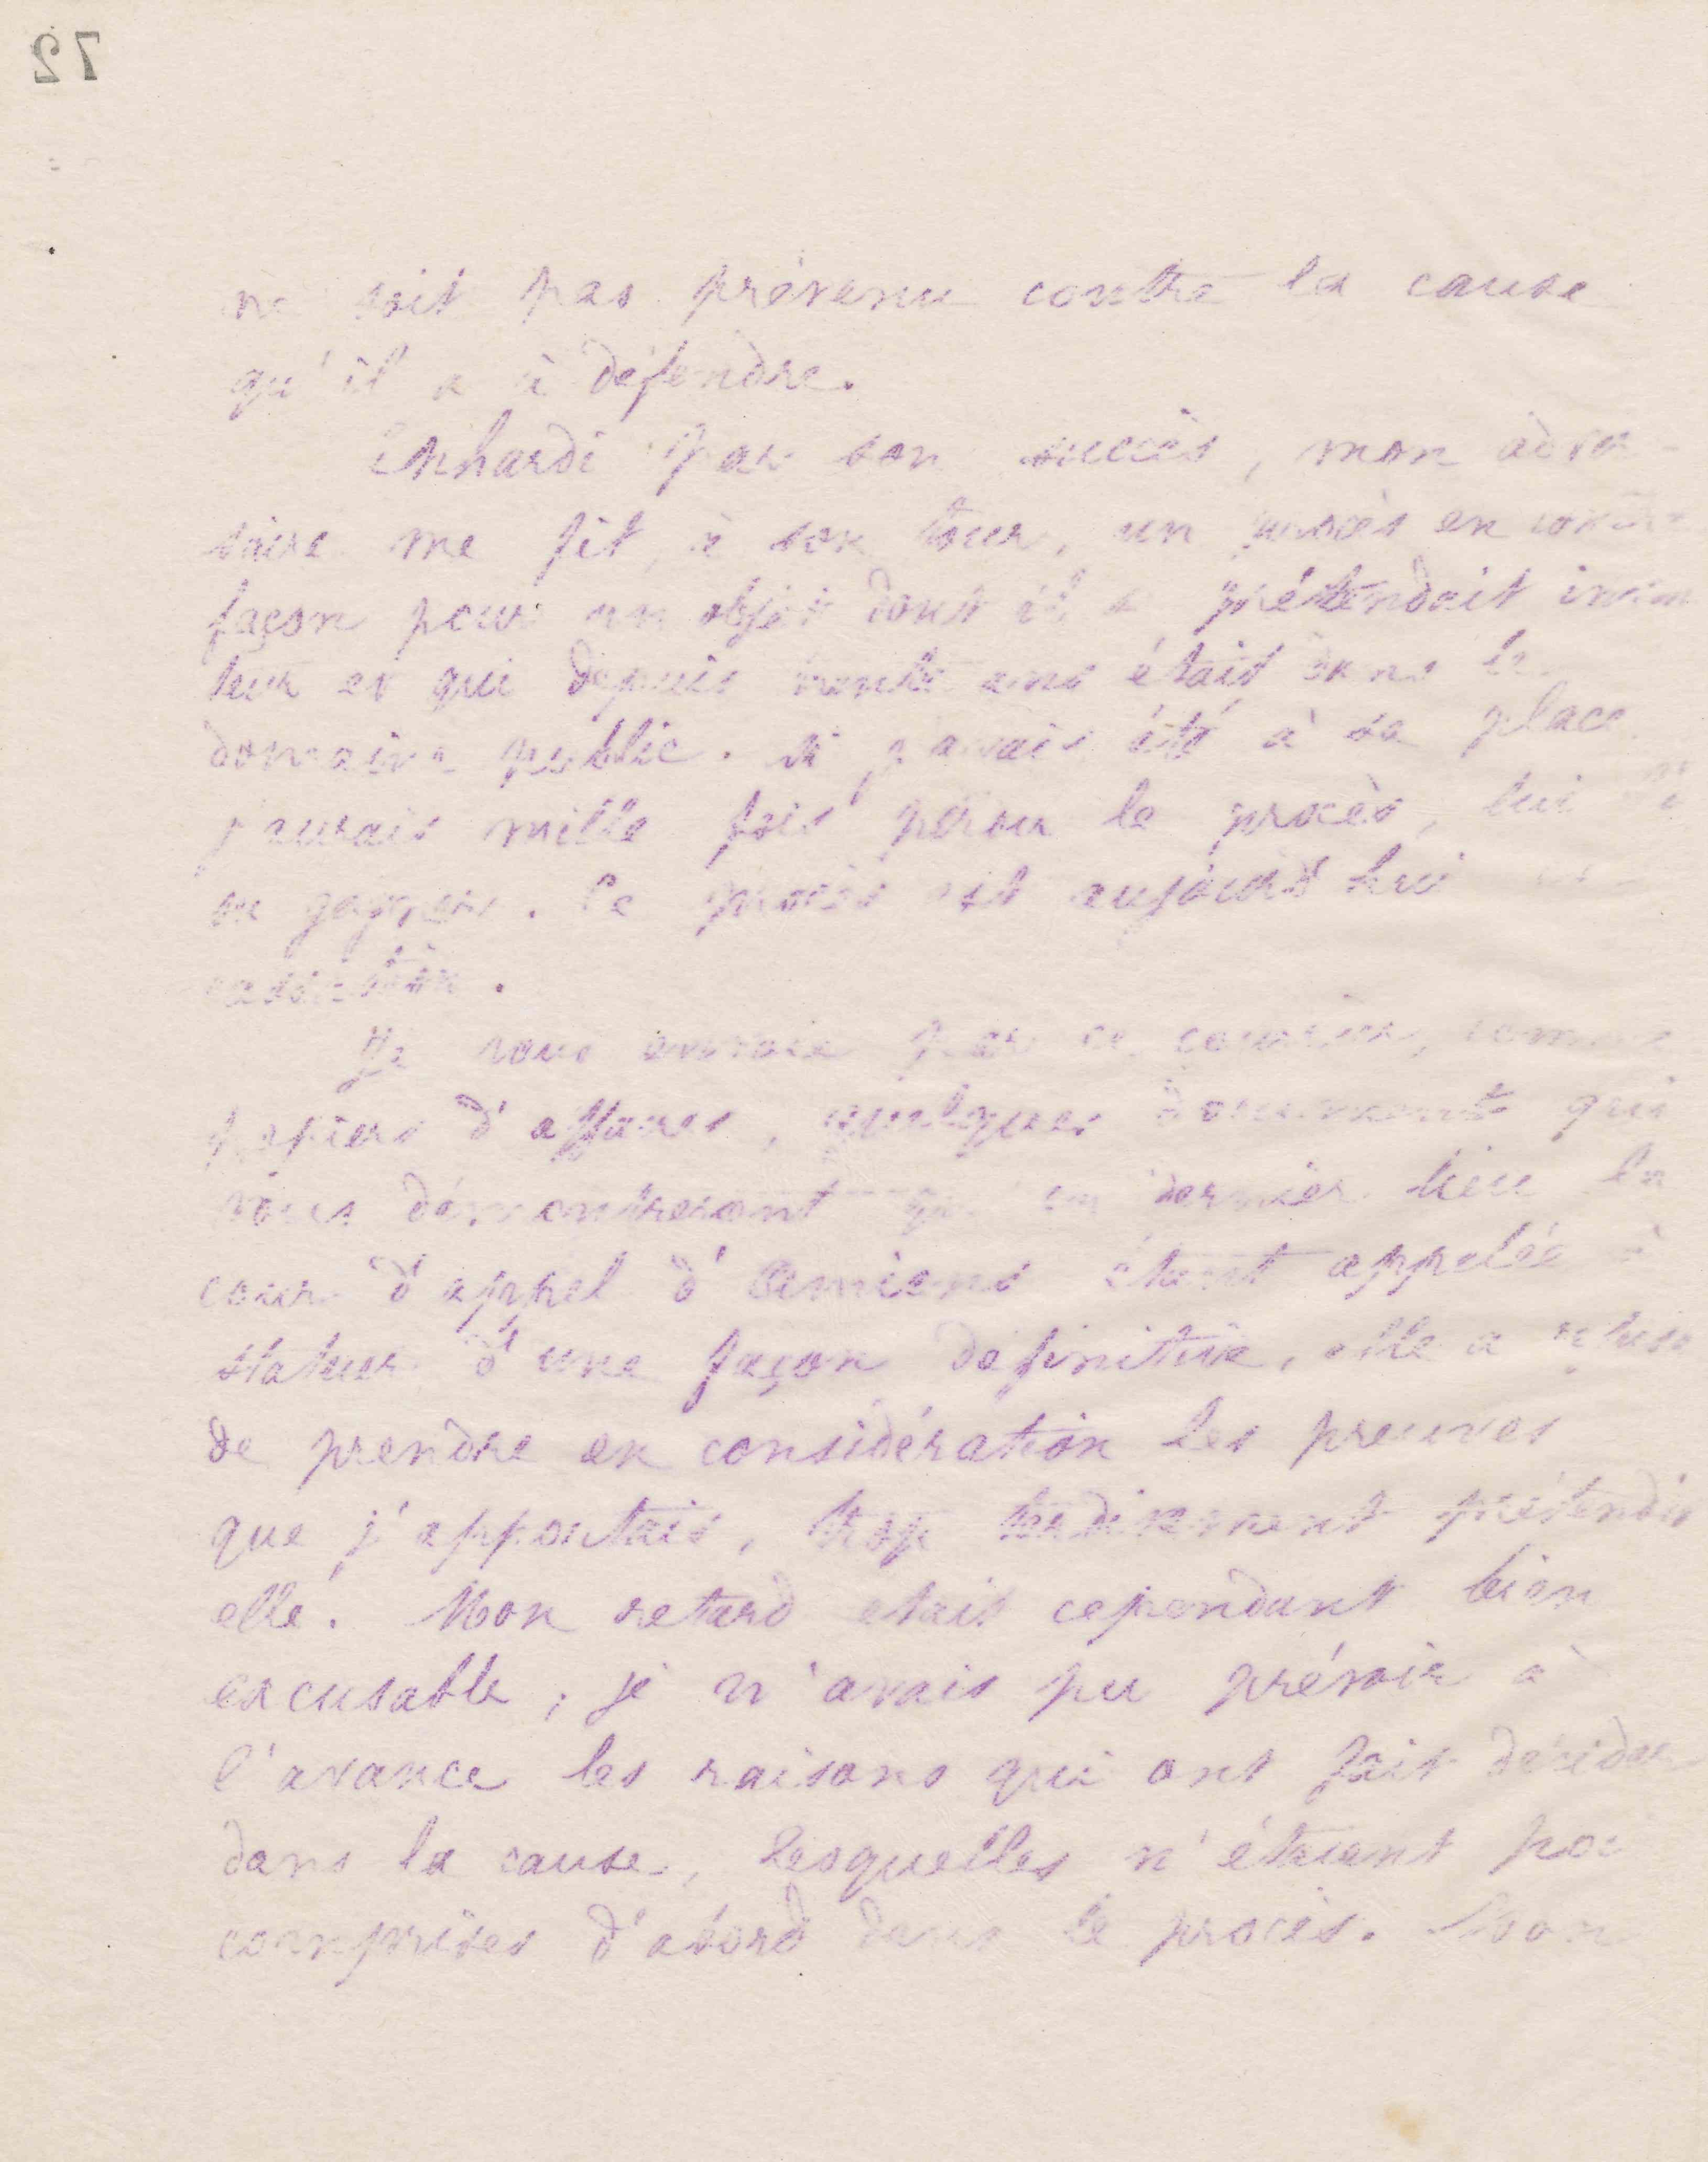 72
ne soit pas prévenu contre la cause
qu'il a à défendre.
Enhardi par son succès, mon adver-
saire me fit, à son tour, un procès en contre
façon pour un objet dont il se prétendait inven
teur et qui depuis trente ans était dans le
domaine public. Si j'avais été à sa place
j'aurais mille fois perdu le procès, lui l'a
vu gagner. Ce procès est aujourd'hui en
cassation.
Je vous envoie par ce courrier, comme
papiers d'affaires, quelques documents qui
vous démontreront qu'en dernier lieu la
cour d'appel d'Amiens étant appelée à
statuer d'une façon définitive, elle a refusé
de prendre en considération les preuves
que j'apportais, trop tardivement prétendit
elle. Mon retard était cependant bien
excusable, je n'avais pu prévoir à
l'avance les raisons qui ont fait décider
dans la cause, lesquelles n'étaient pas
comprises d'abord dans le procès. Mon